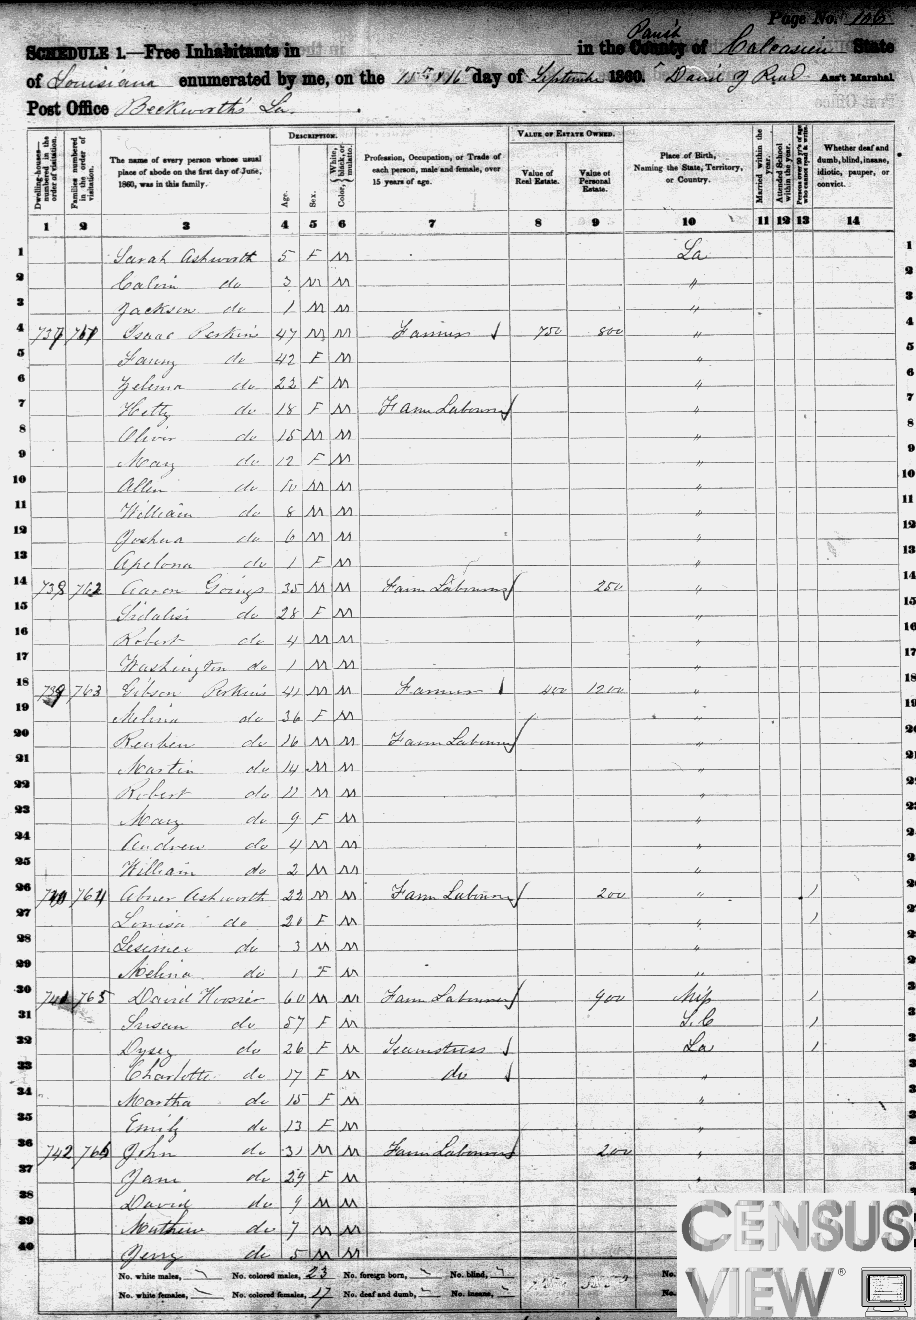 Page No. 106
SCHEDULE 1.—Free Inhabitants in in the County of Calcasieu State
Parish
of Louisiana enumerated by me, on the 15th & 16th day of September 1860. David J Read Ass't Marshal
Post Office Beckworth's La.
DESCRIPTION. VALUE OF ESTATE OWNED.
Dwelling-houses—numbered in the order of visitation.
Families numbered in the order of visitation.
The name of every person whose usual place of abode on the first day of June, 1860, was in this family.
Age.
Sex.
Color, White, black, or mulatto.
Profession, Occupation, or Trade of each person, male and female, over 15 years of age.
Value of Real Estate.
Value of Personal Estate.
Place of Birth, Naming the State, Territory, or Country.
Married within the year.
Attended School within the year.
Persons over 20 y'rs of age who cannot read & write.
Whether deaf and dumb, blind, insane, idiotic, pauper, or convict.
1 2 3 4 5 6 7 8 9 10 11 12 13 14
1 Sarah Ashworth 5 F M La 1
2 Calvin do 3 M M " 2
3 Jackson do 1 M M " 3
4 737 761 Isaac Perkins 47 M M Farmer 750 800 " 4
5 Fanny do 42 F M " 5
6 Zelema do 22 F M " 6
7 Hetty do 18 F M Farm Labourer " 7
8 Oliver do 15 M M " 8
9 Mary do 12 F M " 9
10 Allen do 10 M M " 10
11 William do 8 M M " 11
12 Joshua do 6 M M " 12
13 Apelona do 1 F M " 13
14 738 762 Aaron Goings 35 M M Farm Labourer 250 " 14
15 Sidalisi do 28 F M " 15
16 Robert do 4 M M " 16
17 Washington do 1 M M " 17
18 739 763 Gibson Perkins 41 M M Farmer 400 1200 " 18
19 Melina do 36 F M " 19
20 Reuben do 16 M M Farm Labourer " 20
21 Martin do 14 M M " 21
22 Robert do 11 M M " 22
23 Mary do 9 F M " 23
24 Andrew do 4 M M "
25 William do 2 M M "
26 740 764 Abner Ashworth 22 M M Farm Labourer 200 " /
27 Louisa do 20 F M " /
28 do 3 M M "
29 Melina do 1 F M "
30 741 765 David Hoosier 60 M M Farm Labourer 900 Mip /
31 Susan do 57 F M S.C /
32 Dysey do 26 F M Seamstress La /
33 Charlotte do 17 F M do "
34 Martha do 15 F M "
35 Emily do 13 F M "
36 742 766 John do 31 M M Farm Labourer 200 "
37 Jane do 29 F M "
38 David do 9 M M
39 Mathew do 7 M M
40 Jerry do 5 M M
No. white males, No. colored males, 23 No. foreign born, No. blind, No.
No. white females, No. colored females, 17 No. deaf and dumb, No. insane, No.
CENSUS
VIEW®